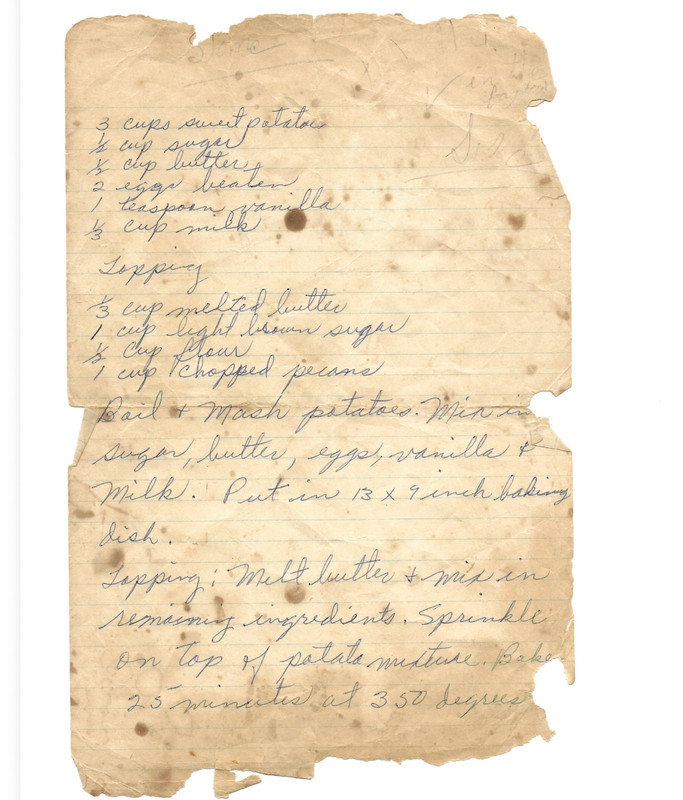 3 cups sweet potatoes
½ cup sugar
½ cup butter
2 eggs beaten
1 teaspoon vanilla
⅓ cup milk
Topping
⅓ cup melted butter
1 cup light brown sugar
½ cup flour
1 cup chopped pecans
Boil + Mash potatoes. Mix in
sugar, butter, eggs, vanilla +
Milk. Put in 13 x 9 inch baking
dish.
Topping: Melt butter + mix in
remaining ingredients. Sprinkle
on top of potato mixture. Bake
25 minutes at 350 degrees